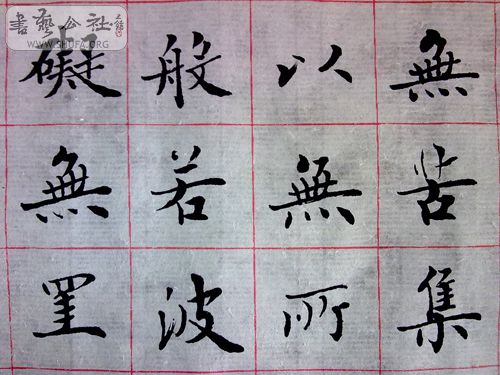 無苦集
以無所
般若波
礙無罣
書藝公社
WWW.SHUFA.ORG